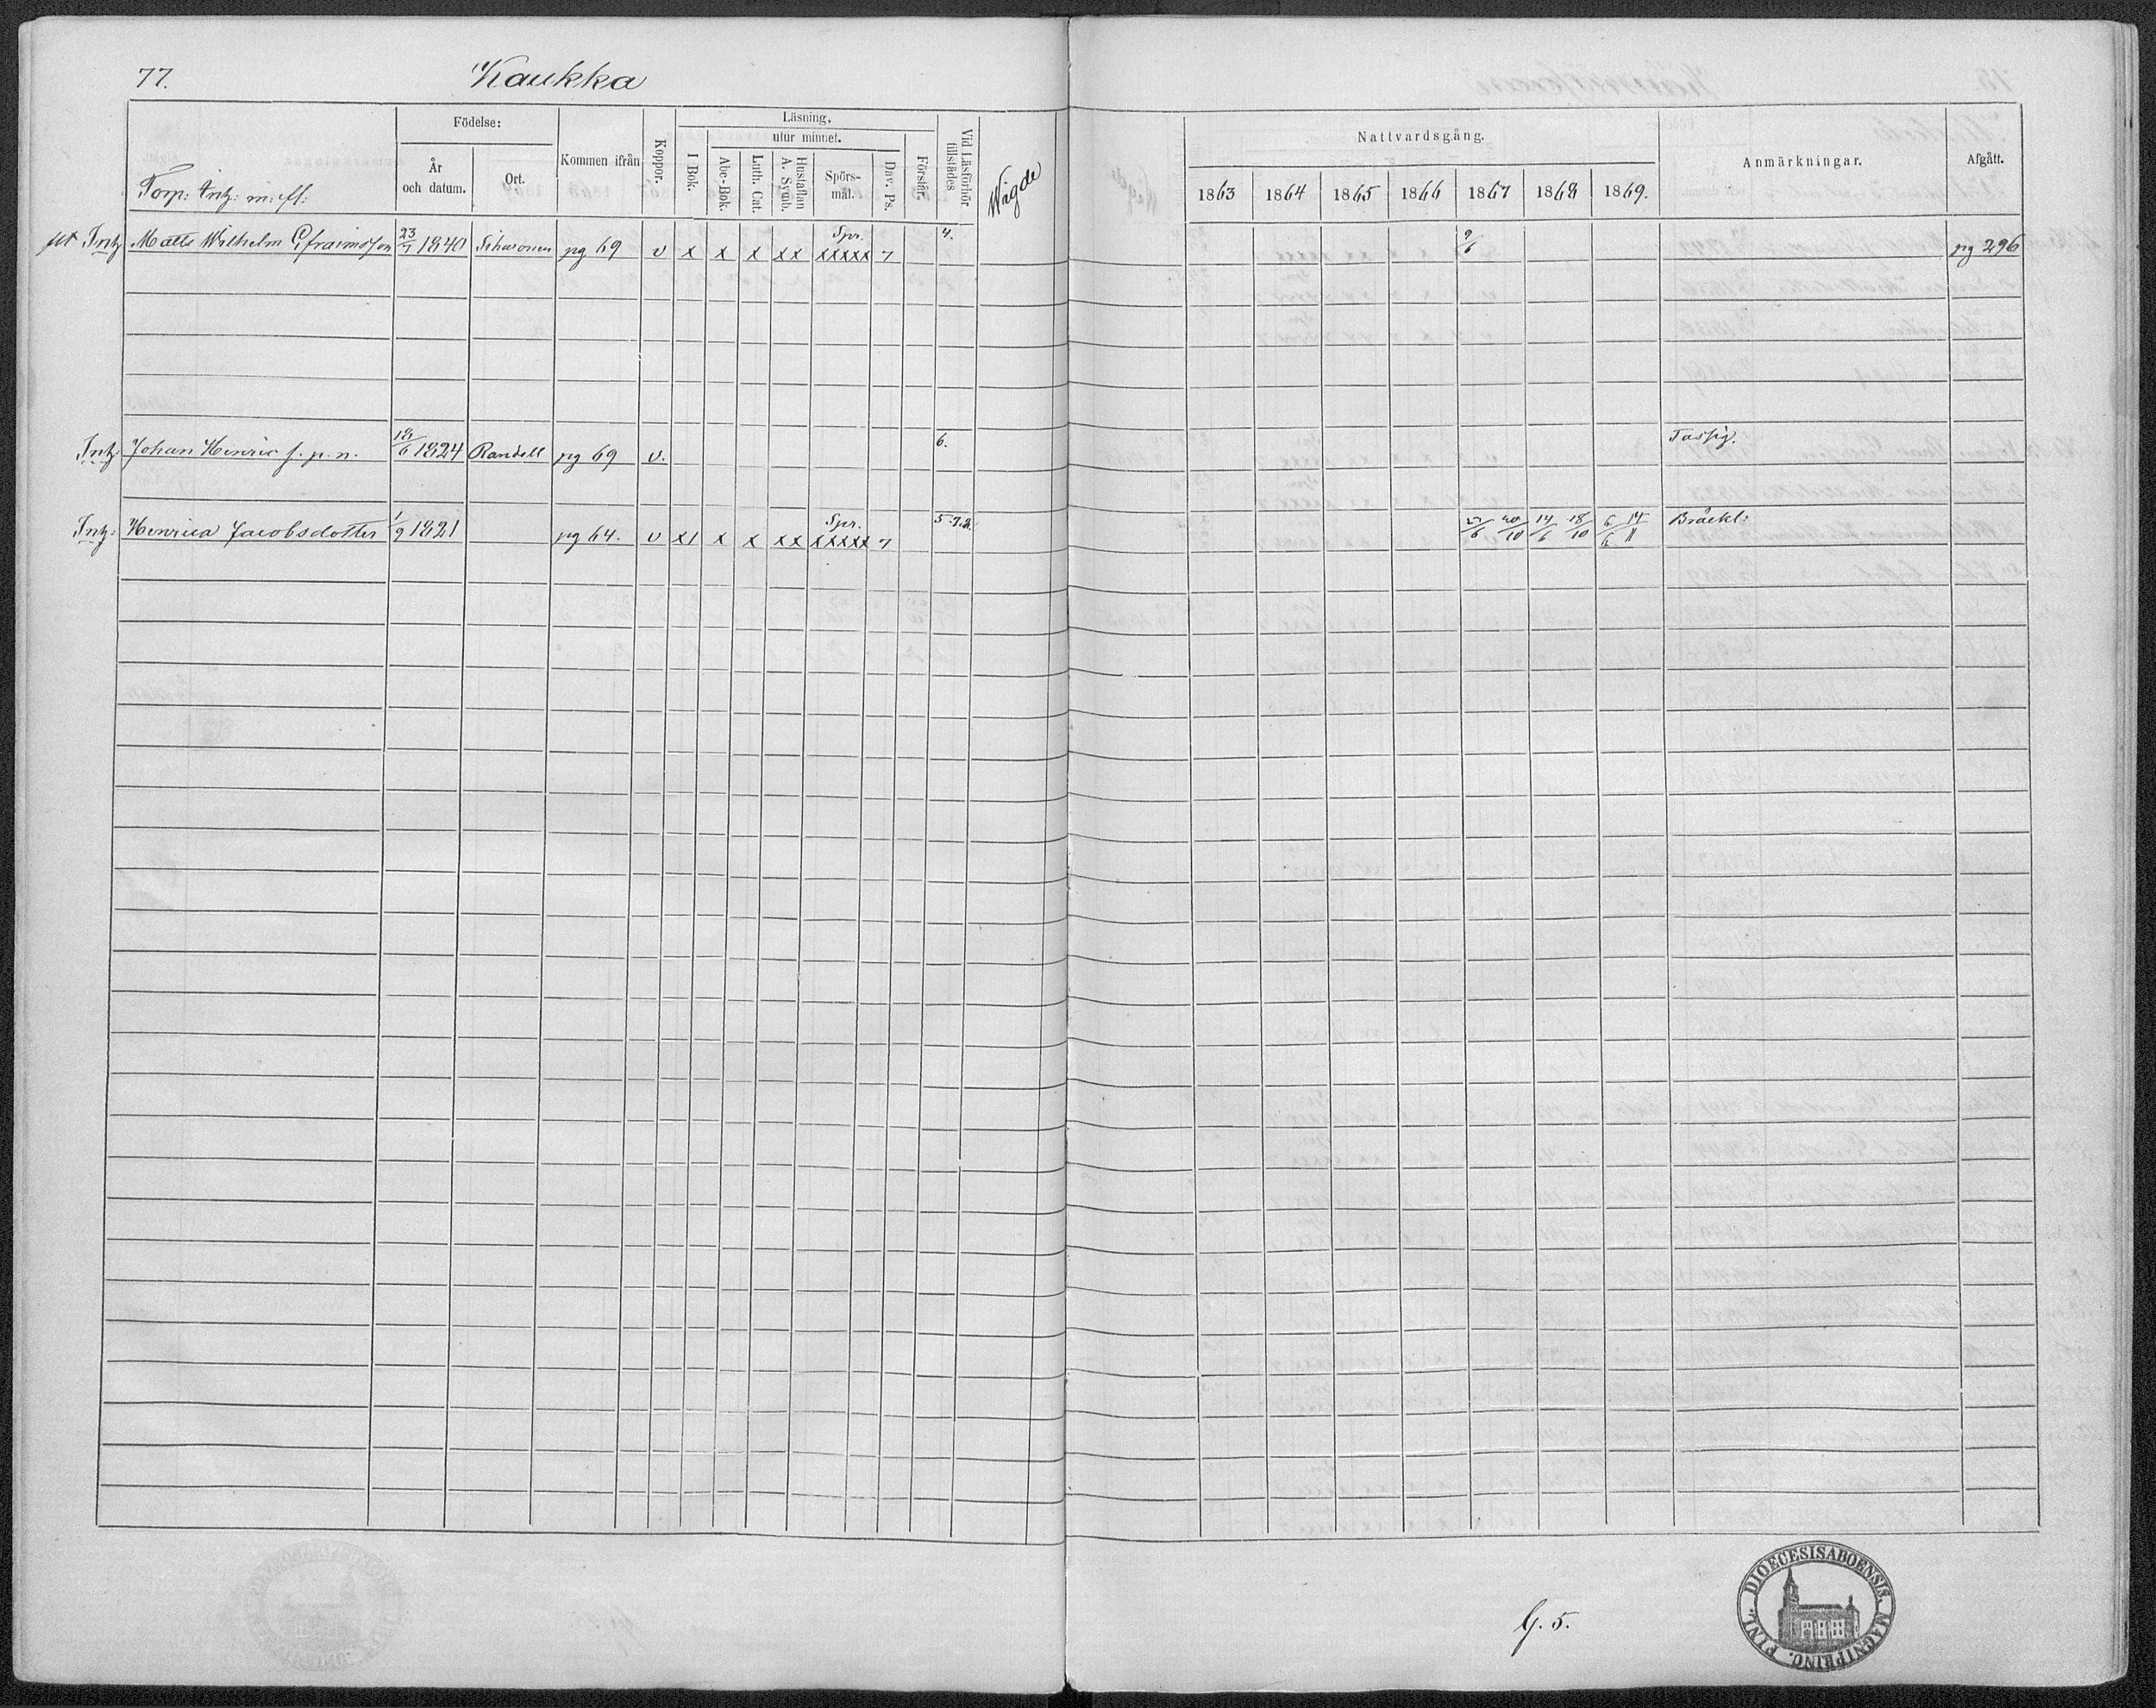 77. Kaukka
Födelse: Läsning, utur minnet. Nattvardsgång. Anmärkningar. Afgått.
Torp: Inh: m: fl: År och datum. Ort. Kommen ifrån Koppor. I Bok. Abc-Bok. Luth. Cat. Hustaflan A. Symb. Spörs-mål. Dav. Ps. Förstår. Vid Läsförhör tillstädes Wigde 1863 1864 1865 1866 1867 1868 1869.
Inh: Matts Wilhelm Efraimsson 23/7 1840 pg 69 v x x x xx Spr. xxxxx 7 4. 9/6 pg 296
Inh: Johan Henric f. p. n. 18/6 1824 Randell pg 69 v. 6. Fattig.
Inh: Henrica Jacobsdotter 1/9 1821 pg 64. v x1 x x xx Spr. xxxxx 7 5.7.8. 23/6 20/10 14/6 18/10 6/6 14/11 Bräckl:
G. 5.
DIOECESIS ABOENSIS. MAGNI PRINC. FINL.